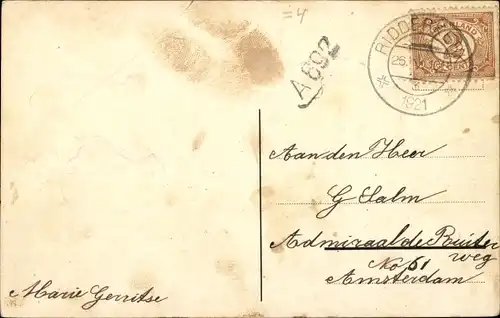 =4
A892
RIDDERKERK
1921
Aan den Heer
G Salm
Admiraal de Ruiter
weg
No 51
Amsterdam
Marie Gerritse